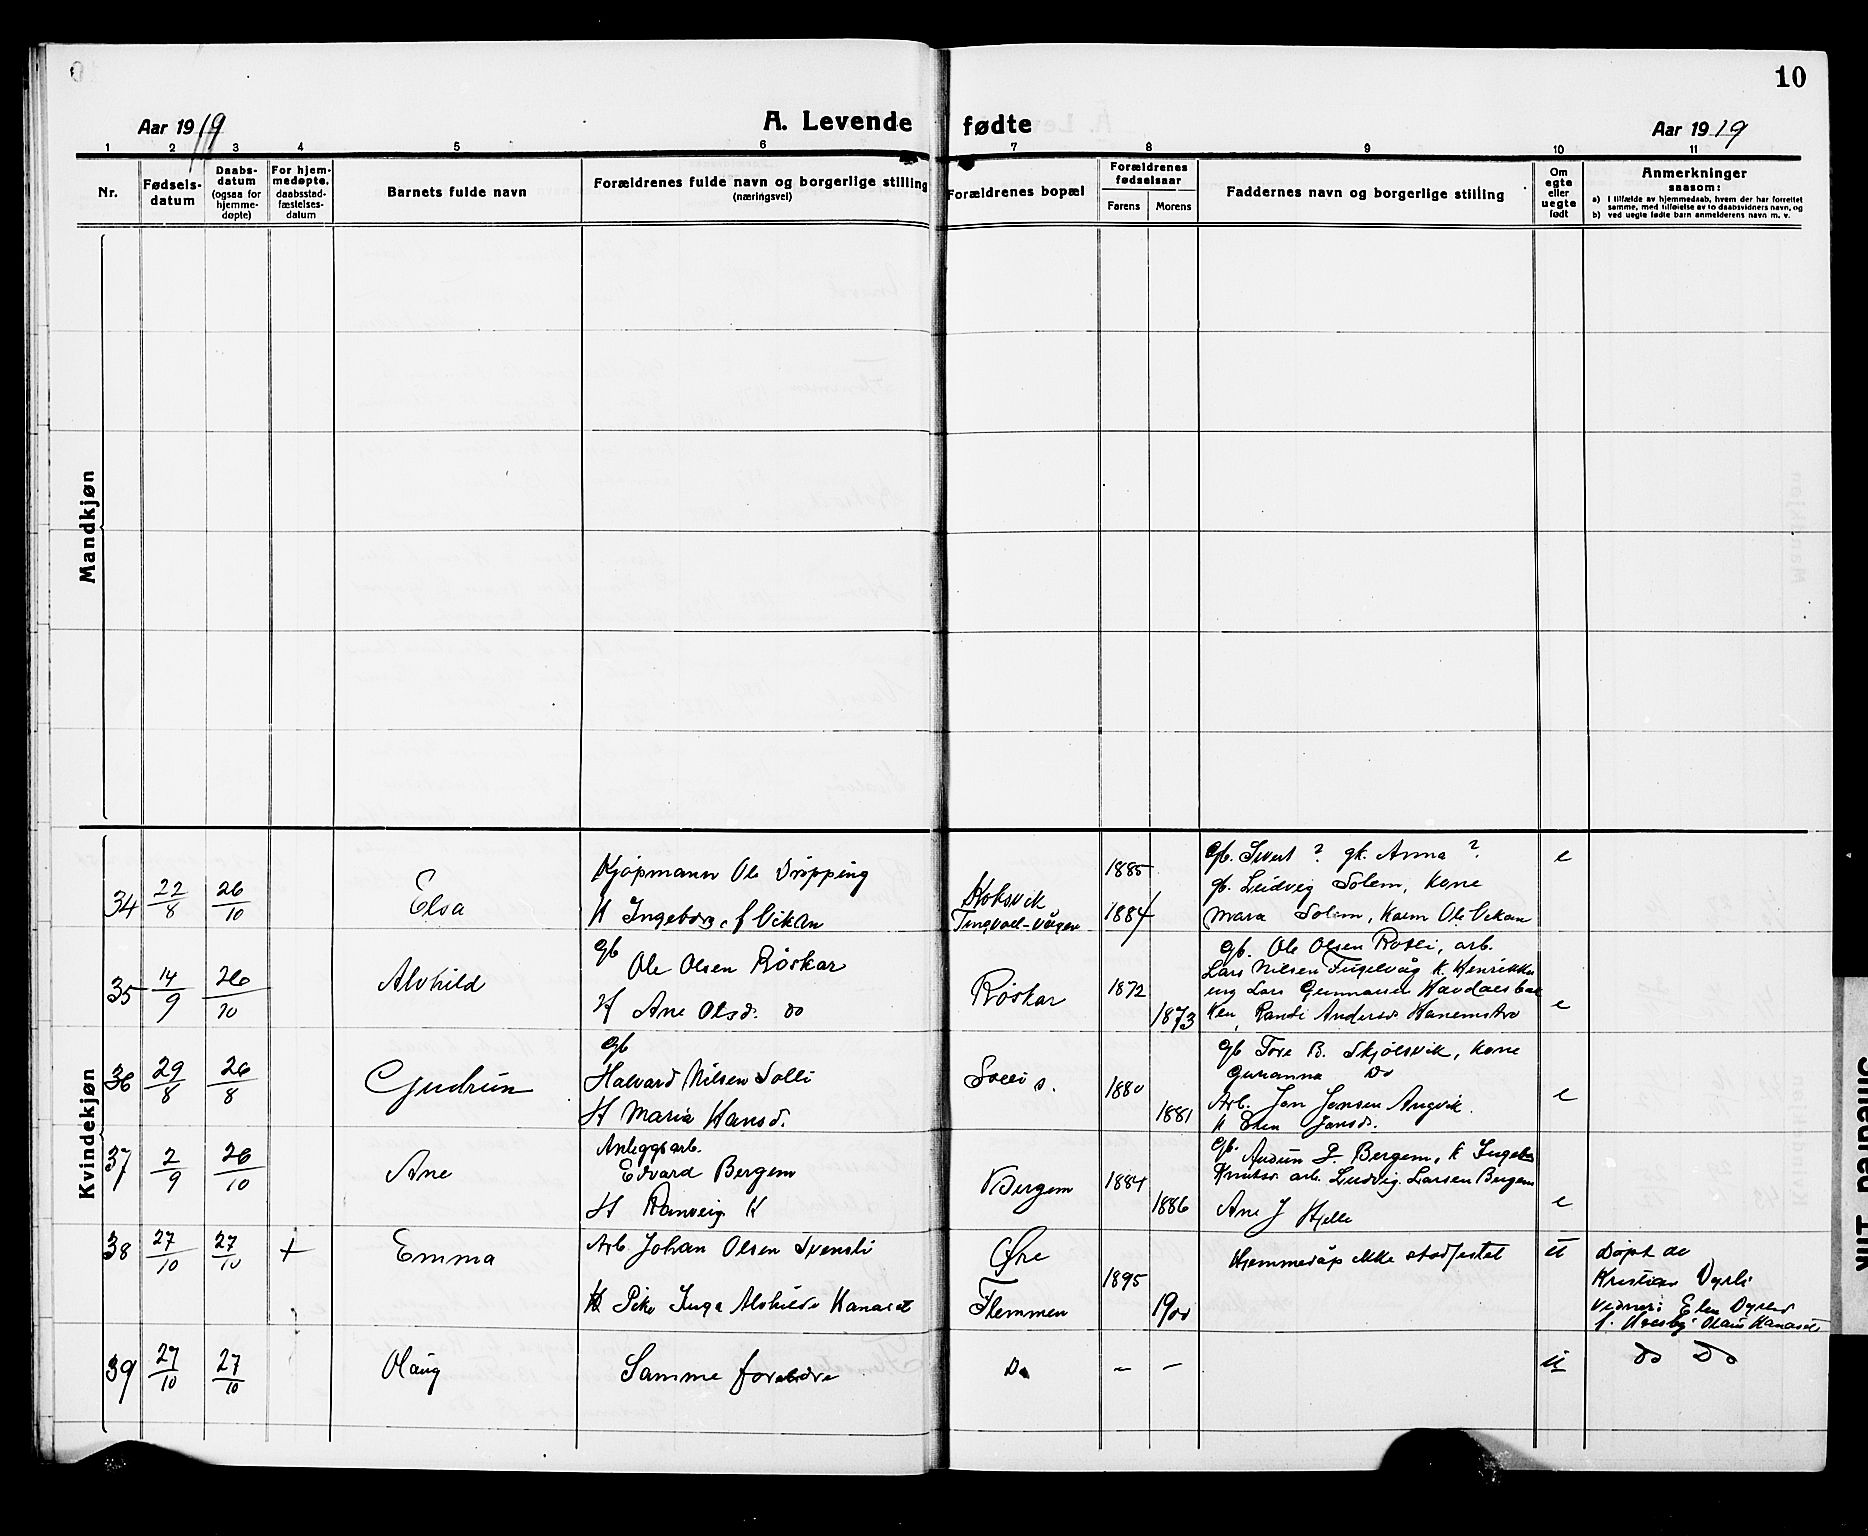 10
Aar 1919
A. Levende fødte
Aar 1919
1 2 3 4 5 6 7 8 9 10 11
Nr.
Fødsels-
datum
Daabs-
datum
(ogsaa for
hjemme-
døpte)
For hjem-
medøpte.
daabsstad-
fæstelses-
datum
Barnets fulde navn
Forældrenes fulde navn og borgerlige stilling
(næringsvei)
Forældrenes bopæl
Forældrenes
fødselsaar
Farens
Morens
Faddernes navn og borgerlige stilling
Om
egte
eller
uegte
født
Anmerkninger
saasom:
a) I tilfælde av hjemmedaab, hvem der har forrettet
samme, med tilføielse av to daabsvidners navn, og
b) ved uegte fødte barn anmelderens navn m. v.
Mandkjøn
Kvindekjøn
34
22/8
26/10
Elsa
Kjøpmann Ole Drøpping
H Ingeborg f Vikan
Koksvik
Tingvoll-vågen
1885
1884
gb. Sivert ? gk. Anna ?
gb. Ludvig Solem, Kone
Mara Solem, Ole Vikan
e
35
14/9
26/10
Alvhild
gb
Ole Olsen Røskar
H Ane Olsd. do
Røskar
1872
1873
gb. Ole Olsen arb.
Lars Nilsen K.
ung Lars Gunnarsen
Randi Andersd
e
36
29/8
26/8
Gudrun
gb
Halvard Nilsen Solli
H Maria Hansd.
Solli s.
1880
1881
gb Tore B. Skjølsvik, Kone
Gurianna Do
Arb. Jon Jonsen Angvik.
K Elen Jonsd.
e
37
2/9
26/10
Ane
Anleggsarb.
Edvard Bergem
H Ranveig K
Bergem
1884
1886
gb. Audun J. Bergem, K
arb. Ludvig Larsen Bergem
Ane J Hjelle
e
38
27/10
27/10
+
Emma
Arb. Johan Olsen Svensli
Pike Inga Alvhilde Kanaset
Øre
Flemmen
1895
1900
Hjemmedåp ikke stadfestet
u
Døpt av
Kristian Dyrli
Vidner: Elen
Olaus Kanaset
39
27/10
27/10
Olaug
Samme foreldre
Do
—
—
u
Do Do